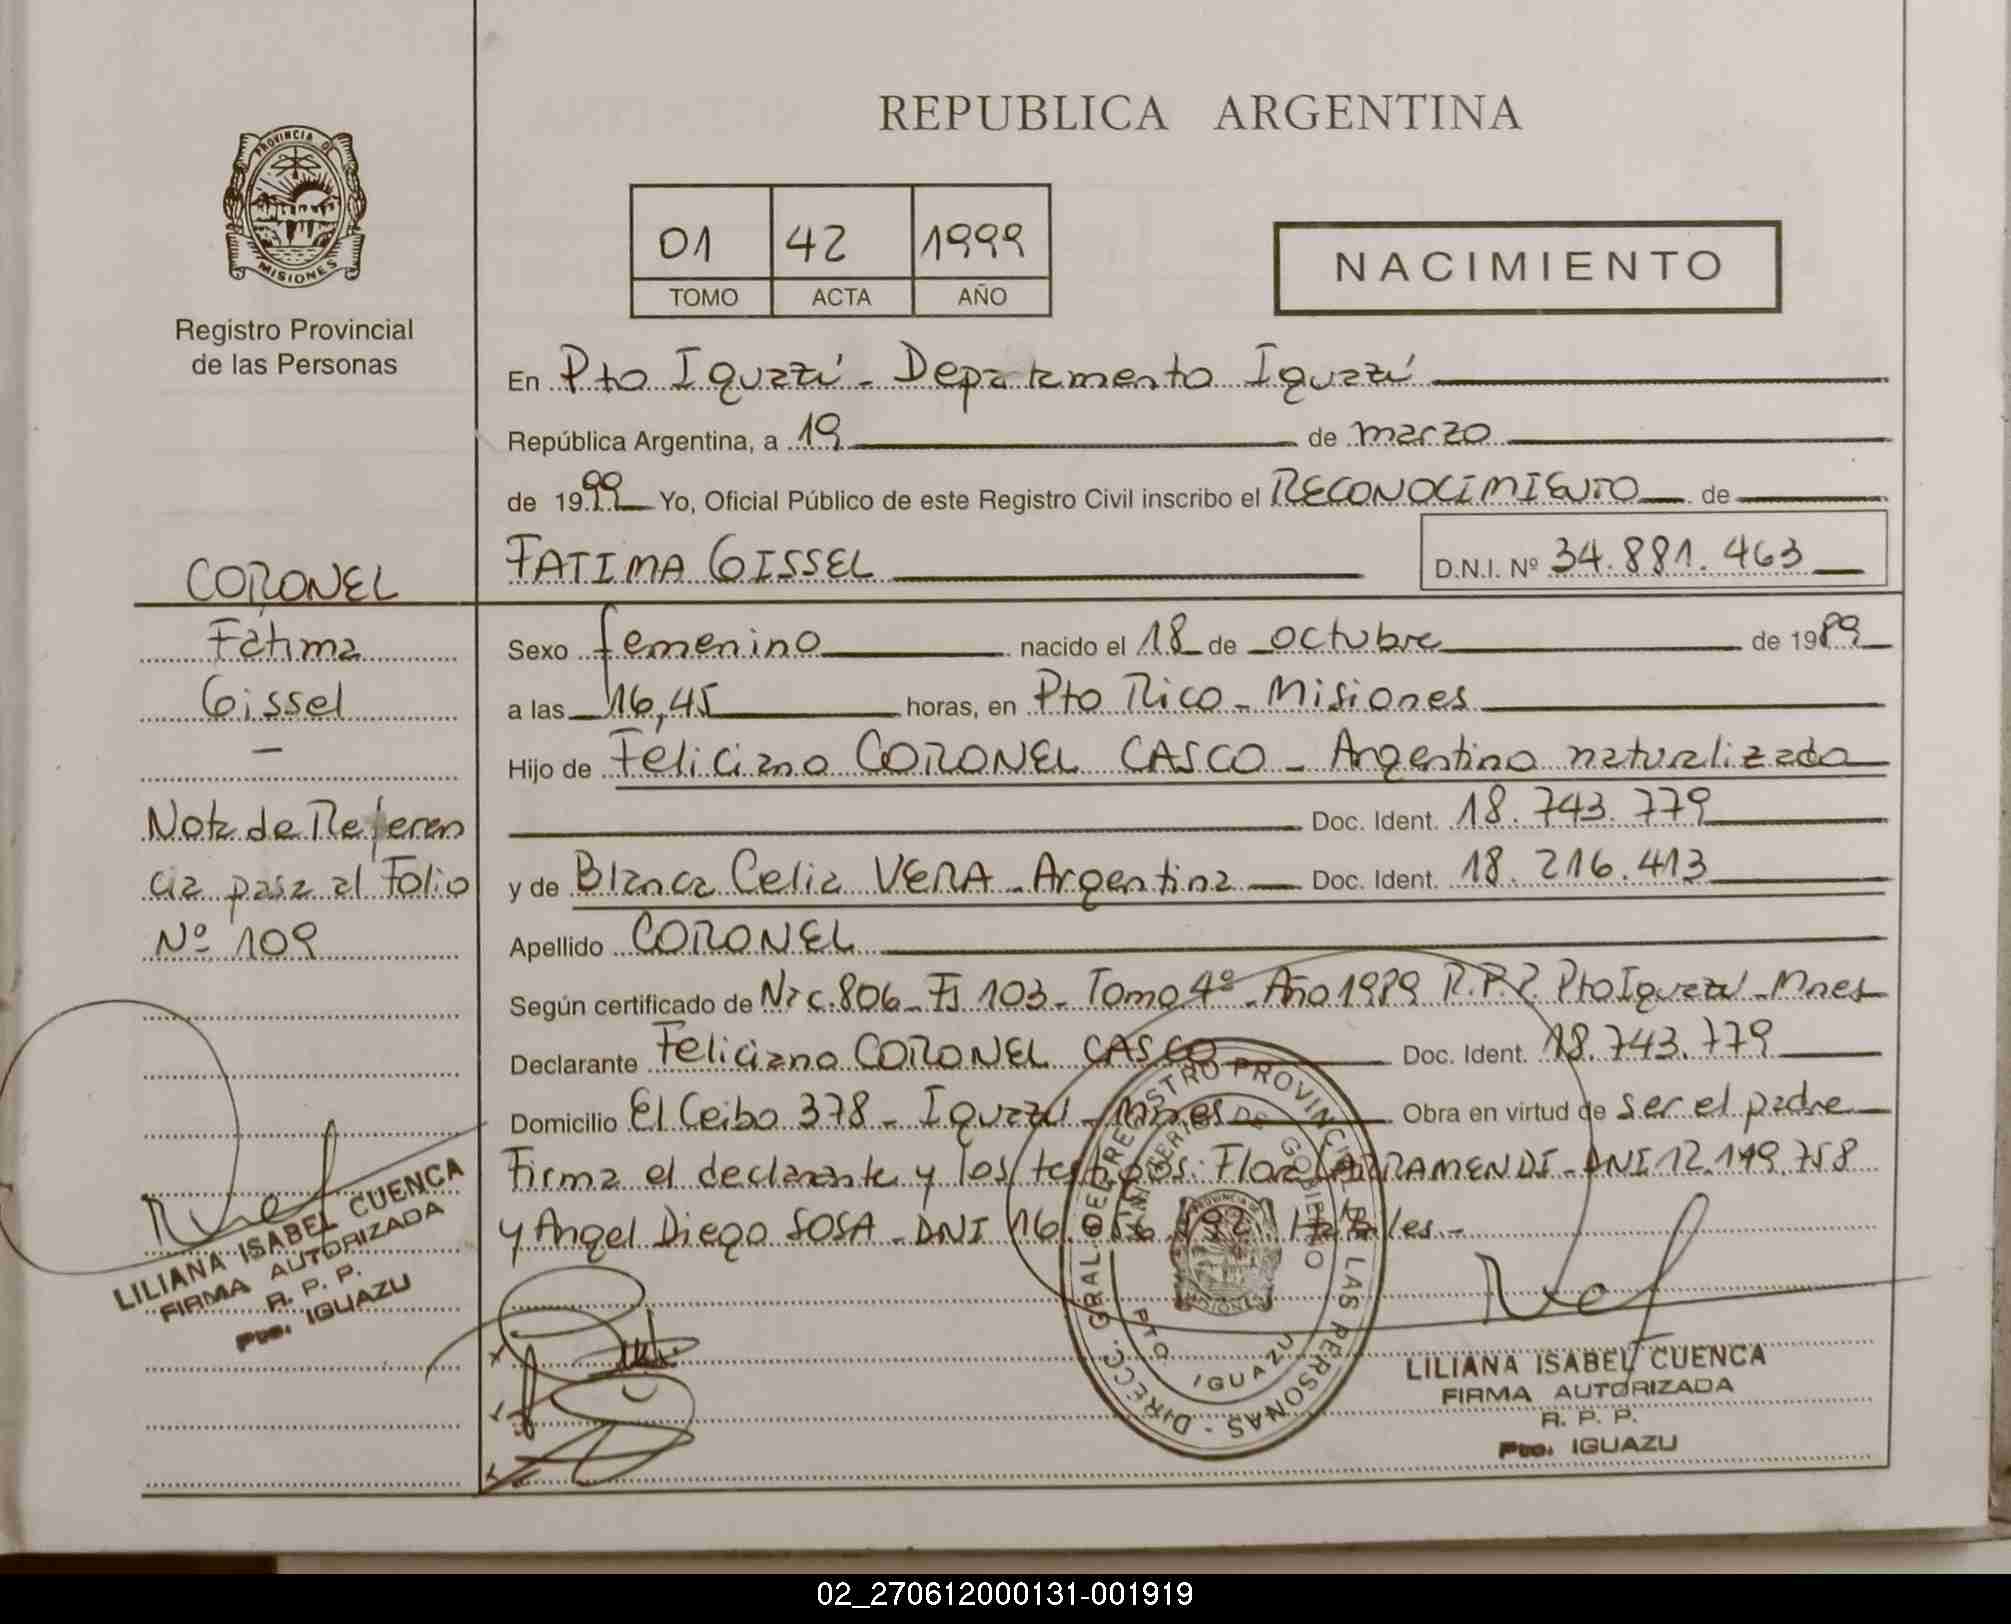 REPUBLICA ARGENTINA
PROVINCIA DE
MISIONES
Registro Provincial
de las Personas
01 42 1999
TOMO ACTA AÑO
NACIMIENTO
En Pto Iguazú - Departamento Iguazú
República Argentina, a 19 de marzo
de 1999 Yo, Oficial Público de este Registro Civil inscribo el RECONOCIMIENTO de
FATIMA GISSEL D.N.I. Nº 34.881.463
Sexo femenino nacido el 18 de octubre de 1989
a las 16,45 horas, en Pto Rico - Misiones
Hijo de Feliciano CORONEL CASCO - Argentino naturalizado
Doc. Ident. 18.743.779
y de Blanca Celia VERA - Argentina Doc. Ident. 18.216.413
Apellido CORONEL
Según certificado de Nac. 806 - Fº 103 - Tomo 4º - Año 1989 R.P.P. Pto Iguazú - Mnes
Declarante Feliciano CORONEL CASCO Doc. Ident. 18.743.779
Domicilio El Ceibo 378 - Iguazú - Mnes Obra en virtud de ser el padre
Firma el declarante y los testigos: Flora LARRAMENDI - DNI 12.119.758
y Angel Diego SOSA - DNI 16. Hábiles -
CORONEL
Fátima
Gissel
-
Nota de Referen
cia pasa al Folio
Nº 109
LILIANA ISABEL CUENCA
FIRMA AUTORIZADA
R. P. P.
Pto. IGUAZU
DIREC. GRAL. DE REGISTRO PROVINCIAL DE LAS PERSONAS -
MINISTERIO DE GOBIERNO
PROVINCIA DE
MISIONES
PTO IGUAZU
LILIANA ISABEL CUENCA
FIRMA AUTORIZADA
R. P. P.
Pto. IGUAZU
02_270612000131-001919